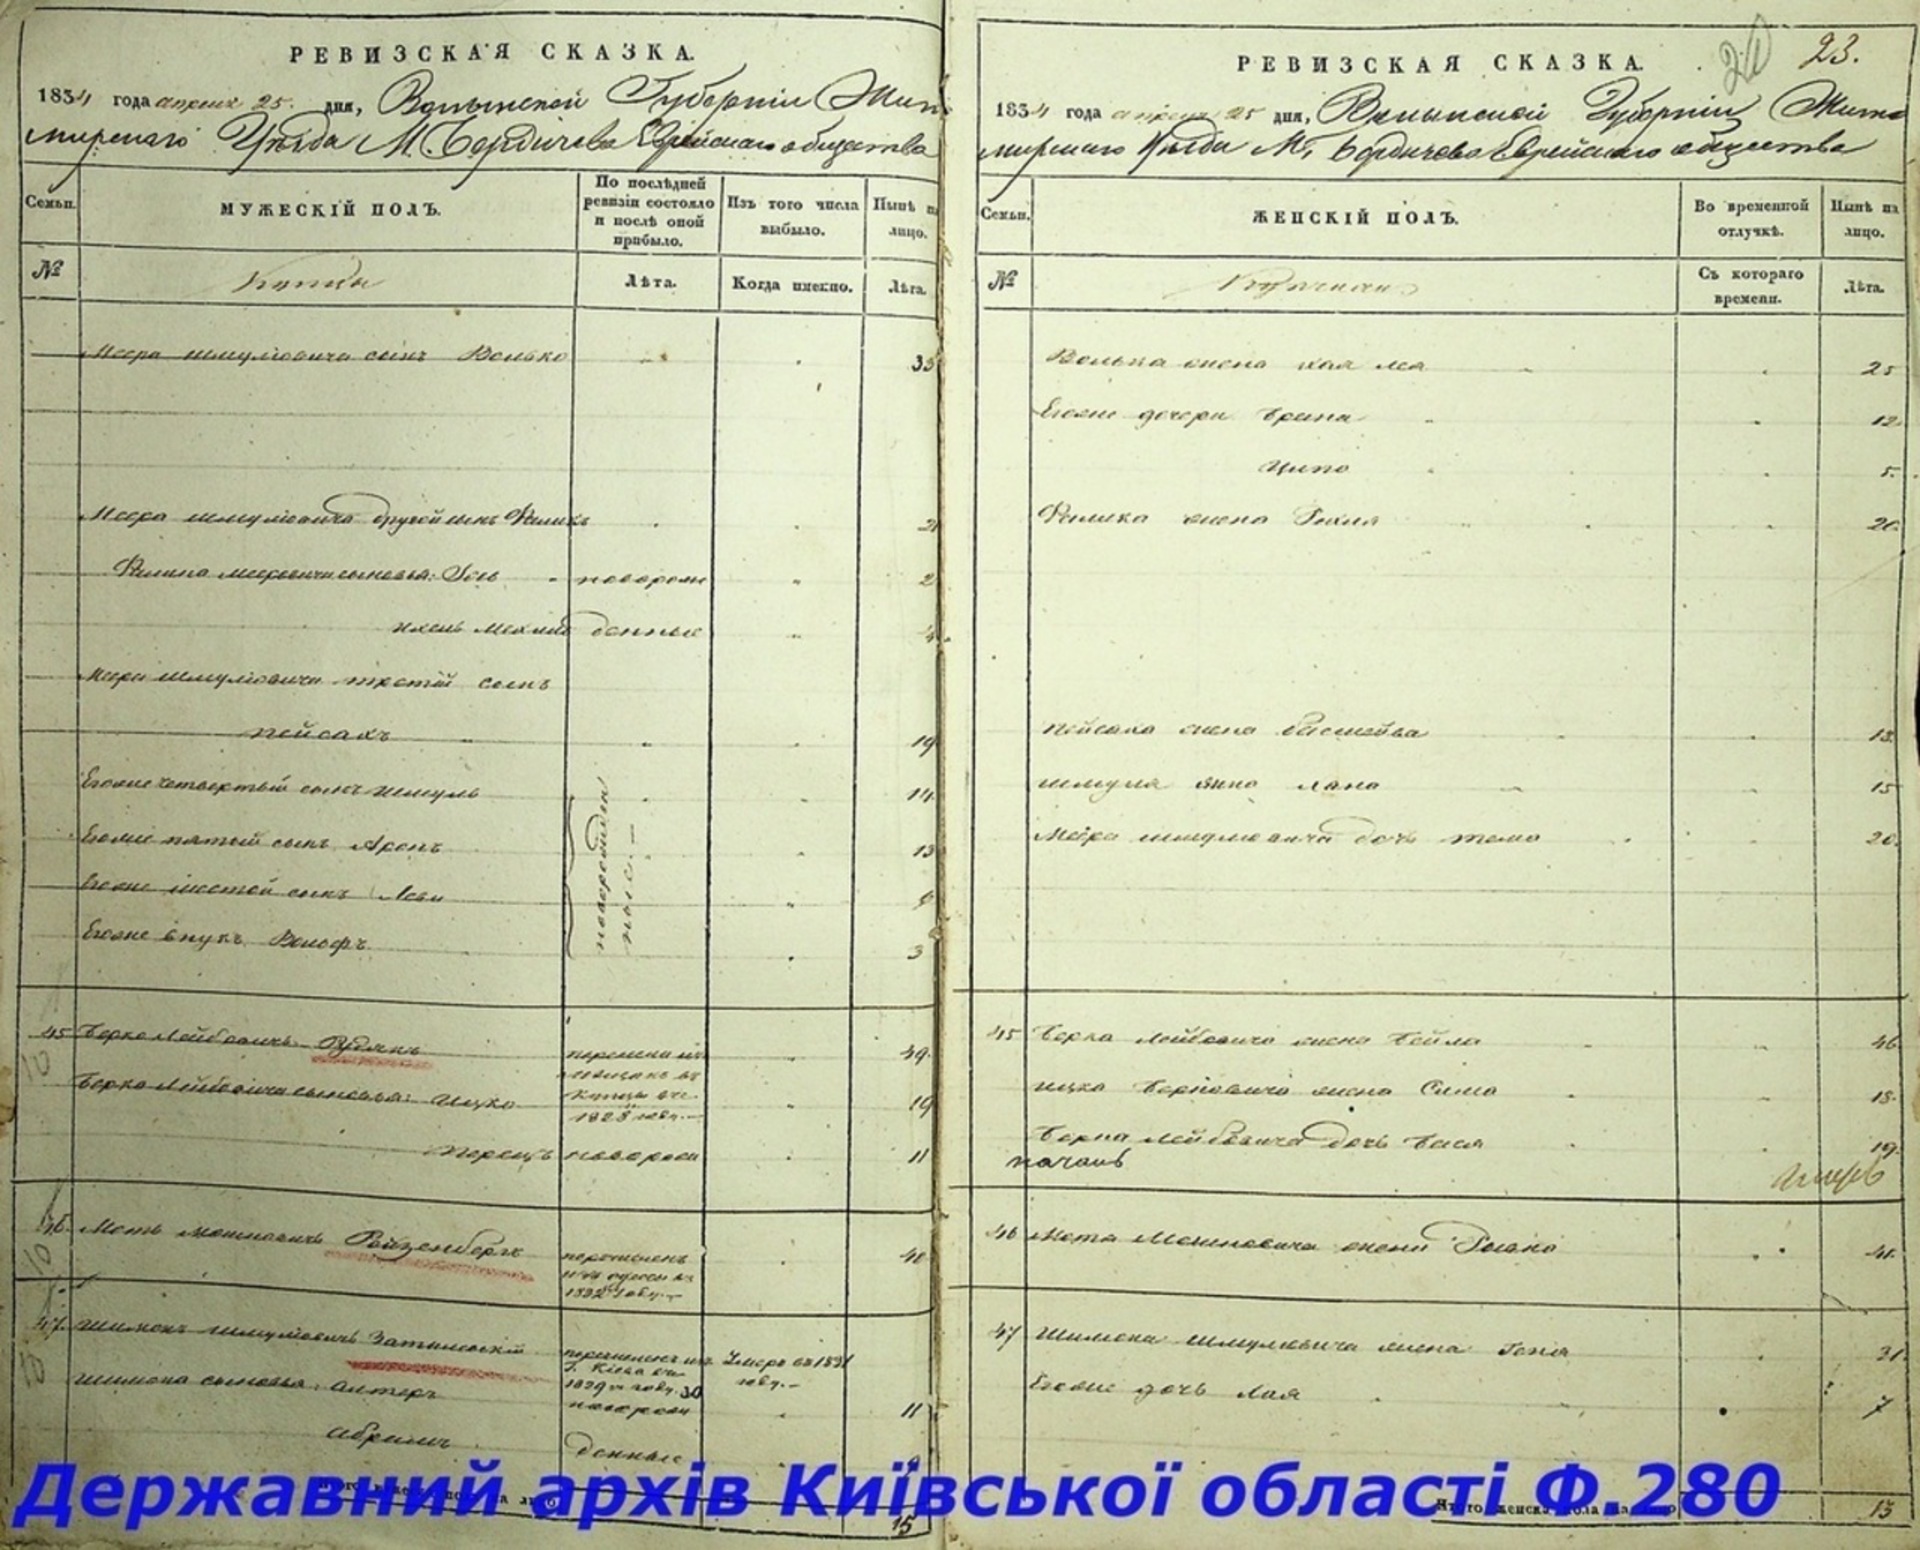 РЕВИЗСКАЯ СКАЗКА.
1834 года апреля 25. дня, Волынской Губернии Жито
мирского Уезда М. Бердичева Еврейского общества
Семьи.
МУЖЕСКІЙ ПОЛЪ.
По послѣдней ревизіи состояло и послѣ оной прибыло.
Изъ того числа выбыло.
Нынѣ на лицо.
№
Лѣта.
Когда имекно.
Лѣта.
Меера Шмулиовича сынъ Волько
35
Меера Шмулиовича другой сынъ
новорож
2
денные
4
Меера Шмулиовича третій сынъ
Пейсахъ
19
Егоже четвертый сынъ Шмуль
14
Егоже пятый сынъ Аронъ
13
Егоже шестой сынъ Леви
Егоже внукъ Вольфъ
3
новорожден
ные.
45 Берко Лейбовичъ Рудякъ
49.
Берка Лейбовича сыновья: Ицко
19
1828 году.
Перецъ
новорож
11
46. Моть Мошковичъ Ройзенбергъ
перечисленъ
изъ одессы въ
1832 году.
40
47. Шимонъ Шмулиовичъ Затиловскій
перечисленъ изъ
г. Кіева въ
1829м году. 30
Умеръ въ 1831
году.
Шимона сыновья: Алтеръ
новорож
11
Абрамъ
денные
9
15
РЕВИЗСКАЯ СКАЗКА.
23.
1834 года апреля 25 дня, Волынской Губерніи Жито
мирского Уезда М. Бердичева Еврейского общества
Семьи.
ЖЕНСКІЙ ПОЛЪ.
Во временной отлучкѣ.
Нынѣ на лицо.
№
Съ котораго времени.
Лѣта.
Волька жена Хая Леа
25
Егоже дочери Брана
12
Ципа
5.
жена Рихля
20.
Пейсаха жена Басшейва
18.
Шмуля жена Хана
15
Меера Шмулиовича дочь Тема
20.
45 Берка Лейбовича жена Бейла
46
Ицка Берковича жена Сима
18.
Берка Лейбовича дочь Бася
19.
46 Мотя Мошковича жена Ривка
41.
47 Шимона Шмулиовича жена Геня
31.
Егоже дочь Лая
7
Итого женска пола на лицо
13
Державний архів Київської області Ф.280